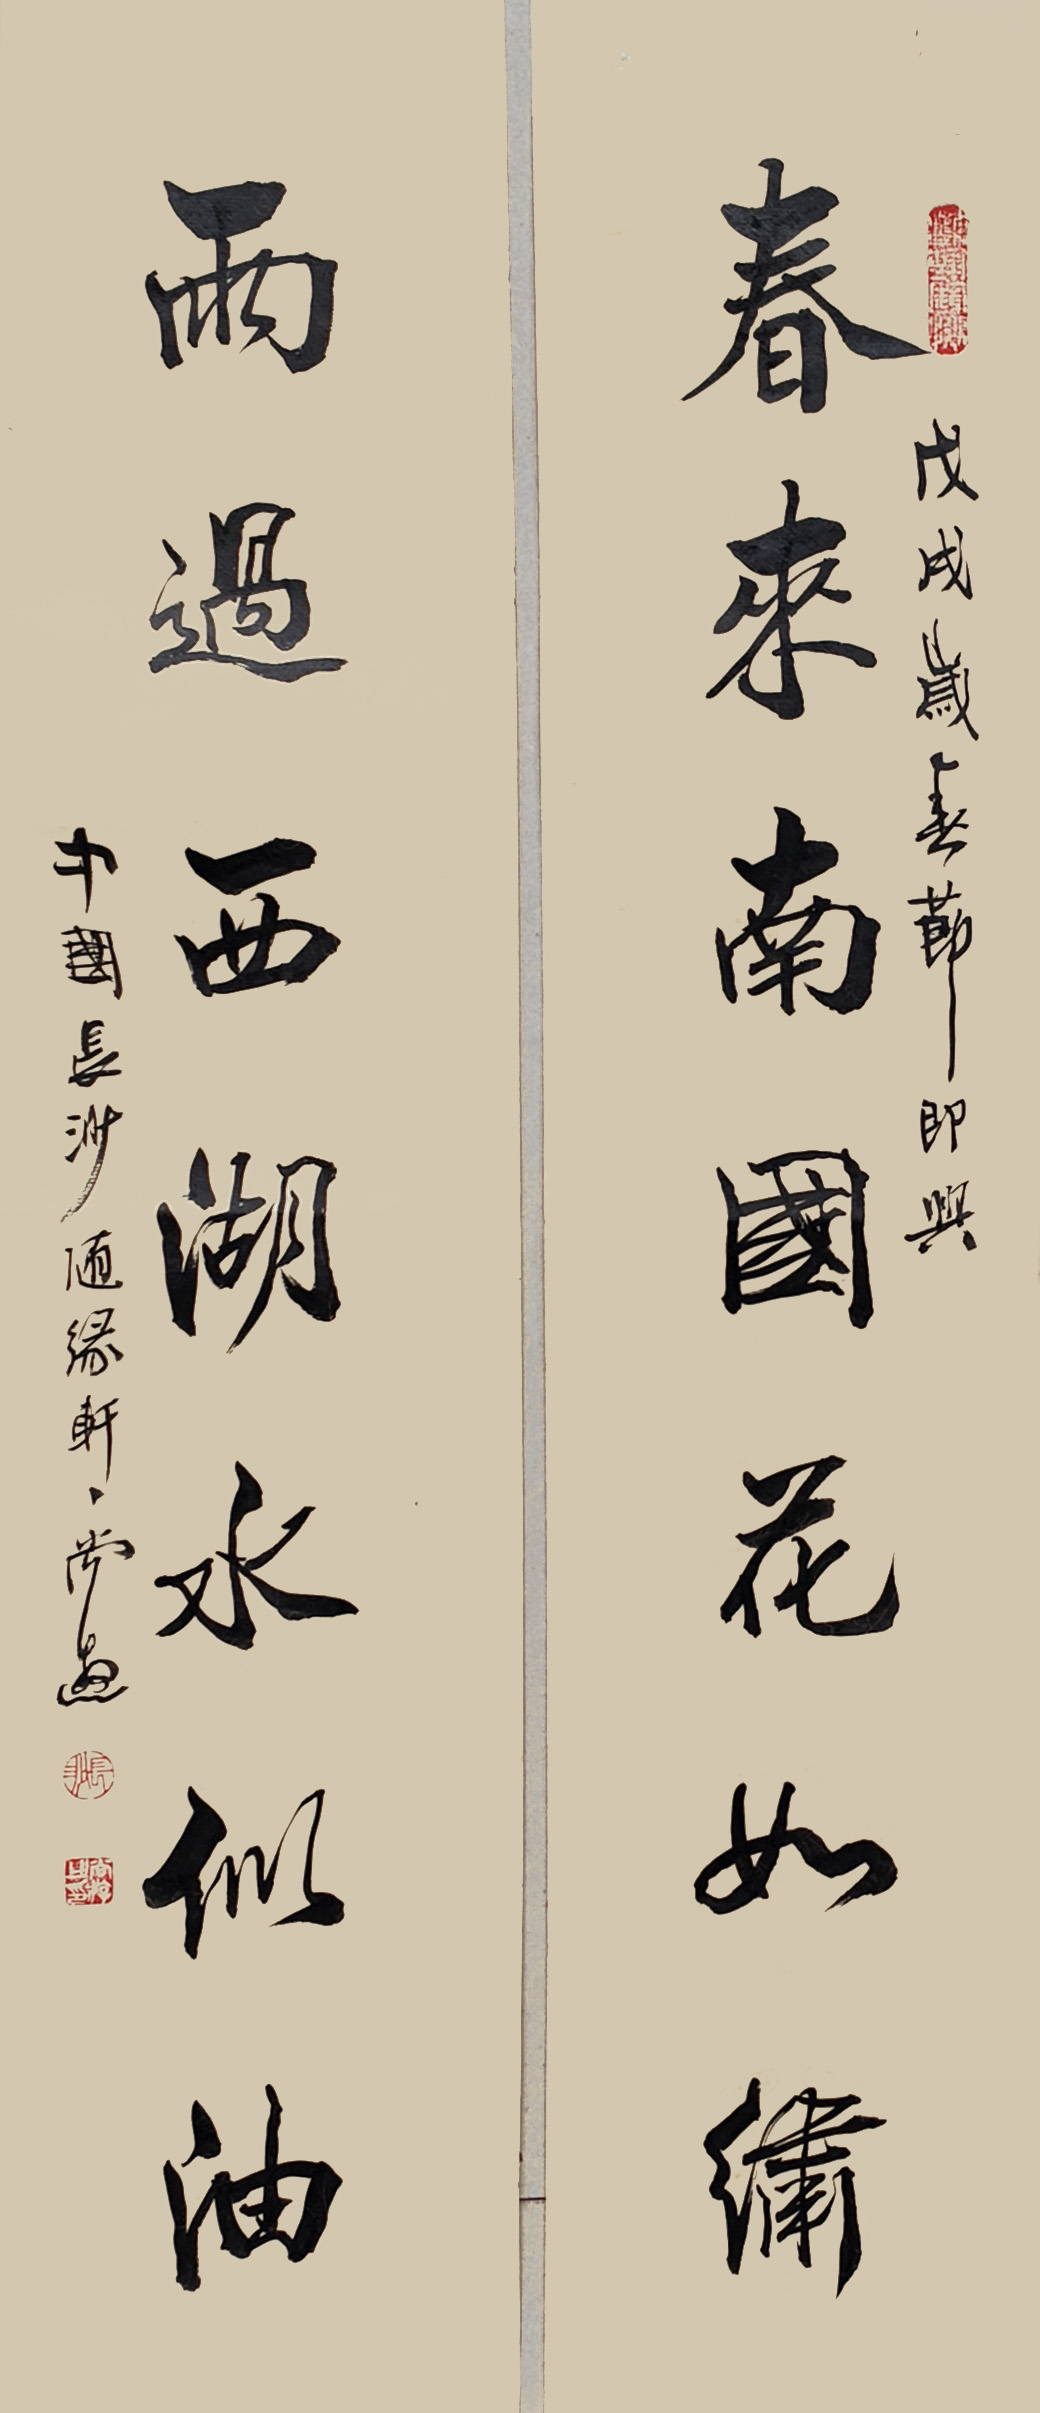 春來南國花如繡
戊戌歲春節即興
雨過西湖水似油
中國長沙隨緣軒